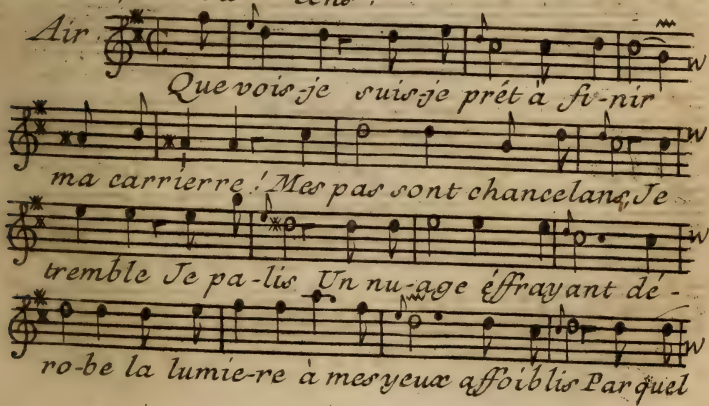 Air
Que vois-je suis-je prét à fi-nir
ma carrierre! Mes pas sont chancelans, Je
tremble Je pa-lis Un nu-age éffrayant dé-
ro-be la lumie-re à mes yeux affoiblis Par quel